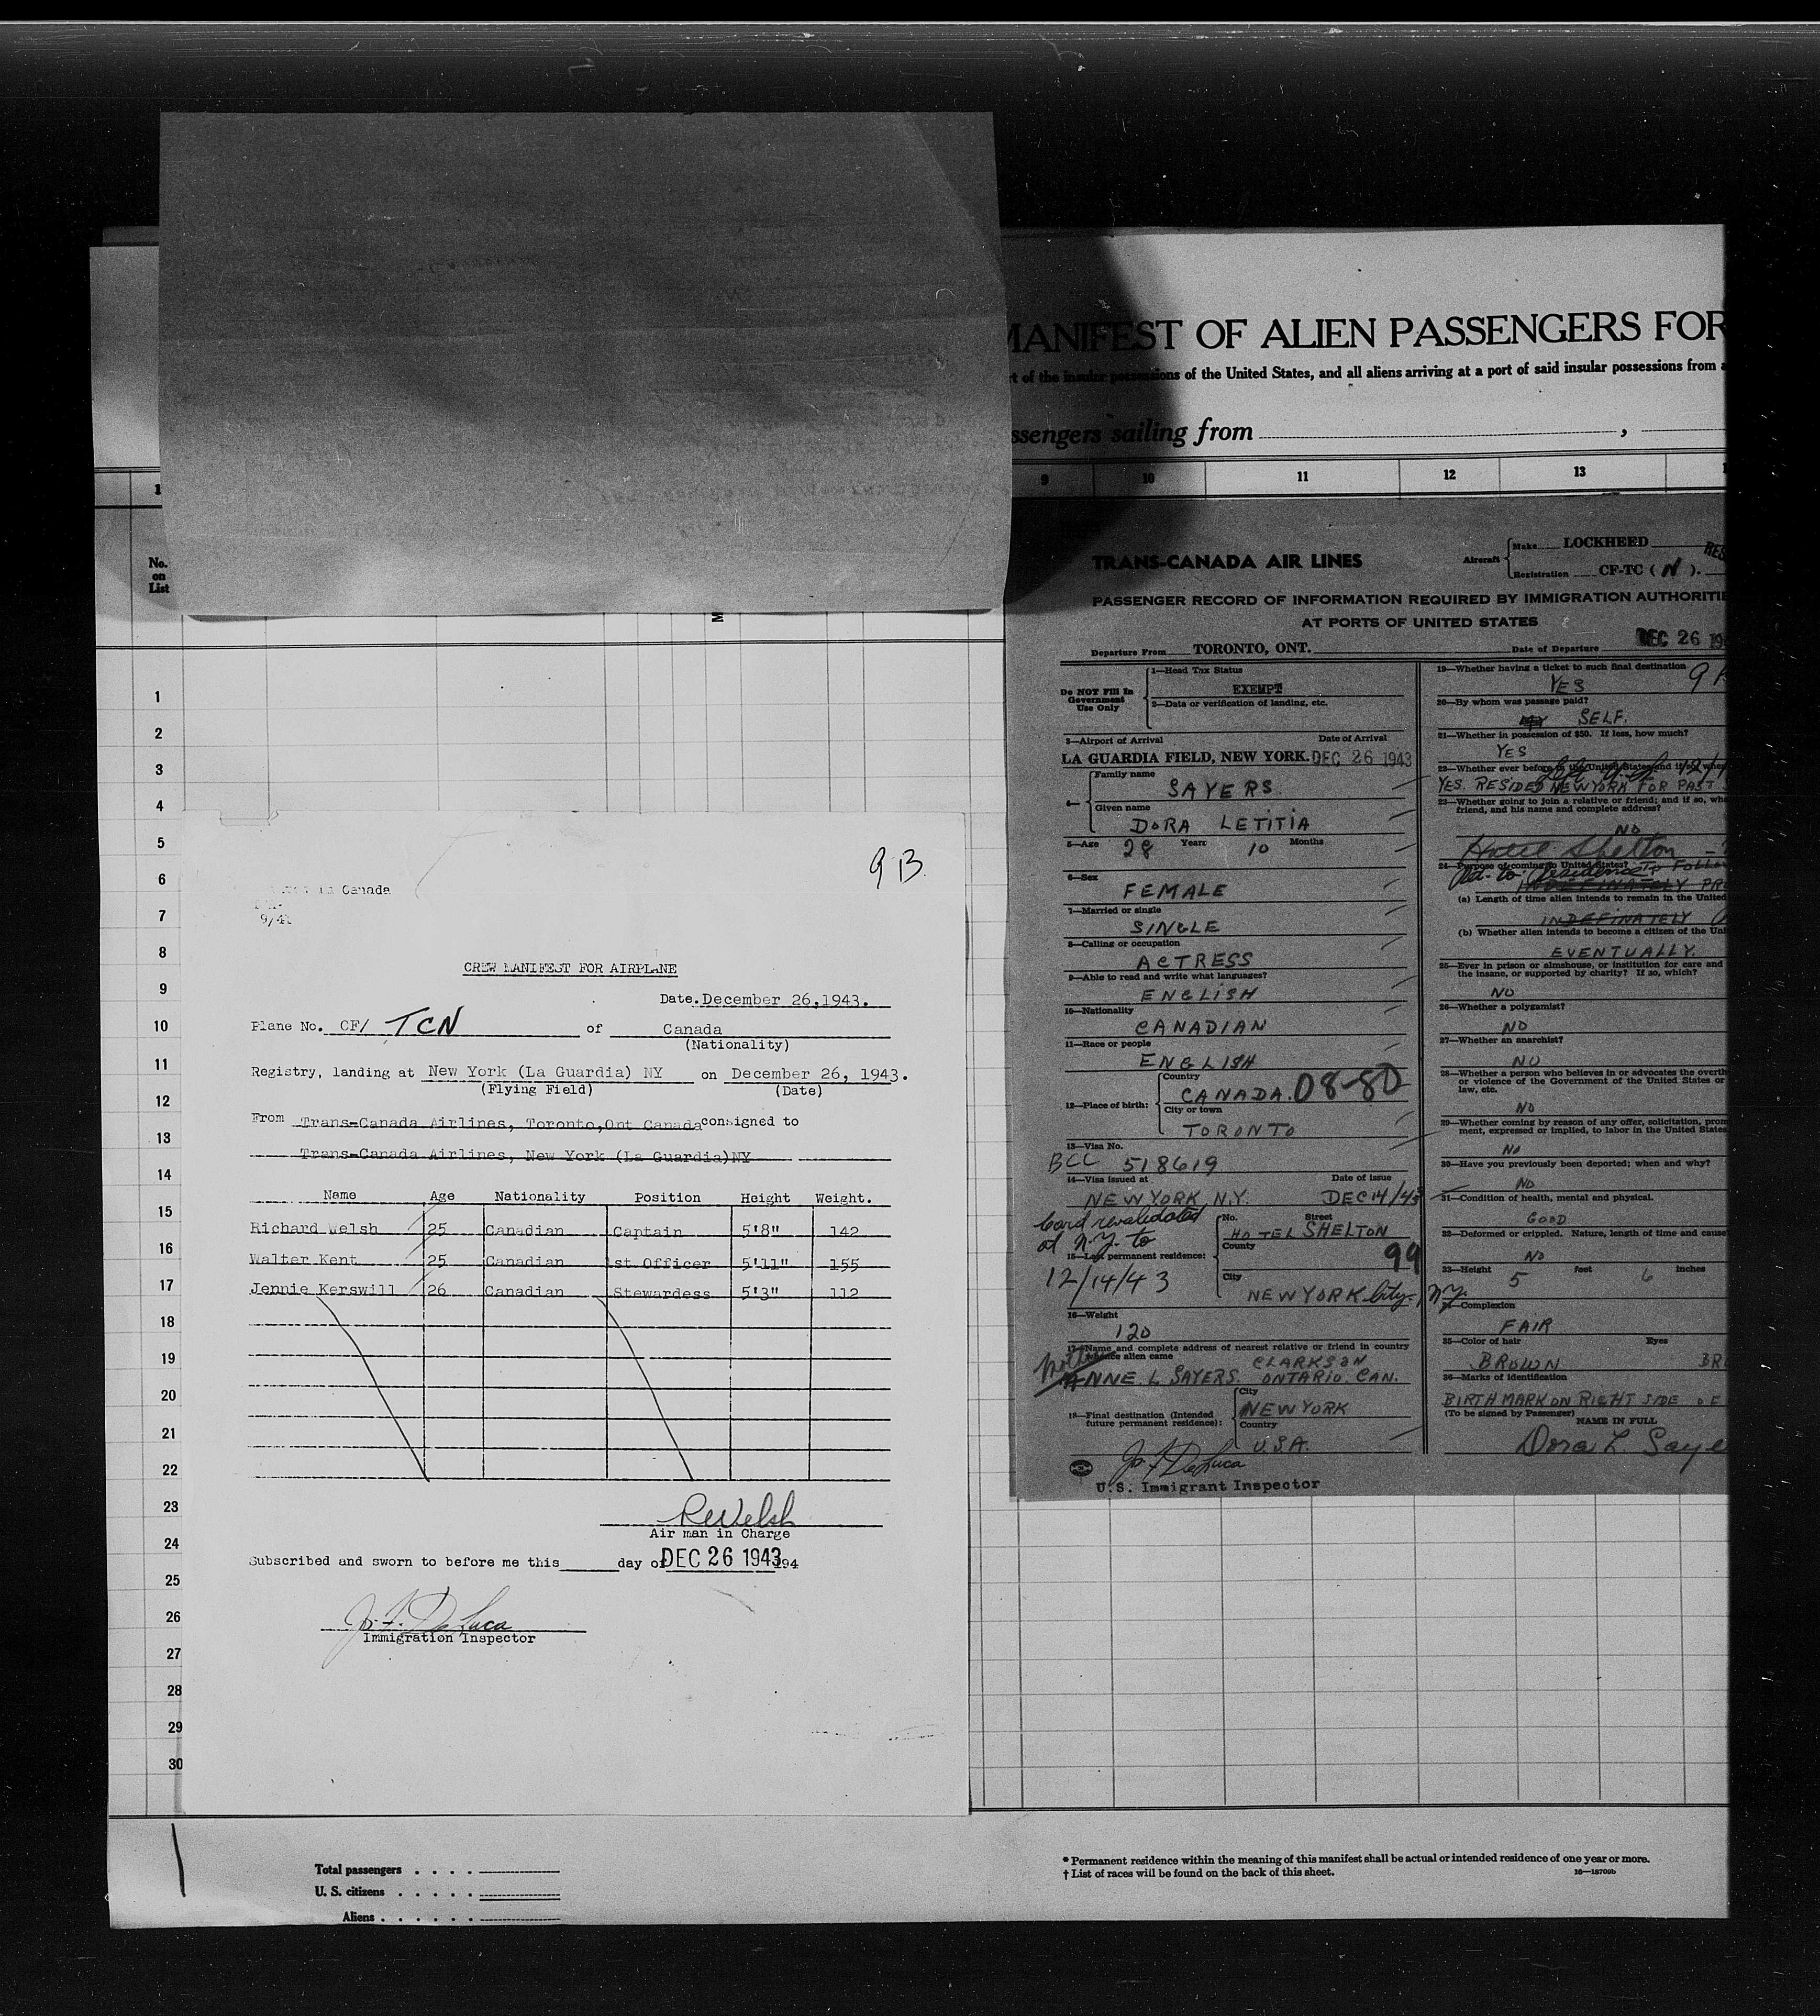 MANIFEST OF ALIEN PASSENGERS FOR
of the insular possessions of the United States, and all aliens arriving at a port of said insular possessions from a
sailing from ,
9 10 11 12 13
1
No.
on
List
1
2
3
4
5
6
7
8
9
10
11
12
13
14
15
16
17
18
19
20
21
22
23
24
25
26
27
28
29
30
9 B.
Canada
9/41
CREW MANIFEST FOR AIRPLANE
Date. December 26,1943.
Plane No. CF/ TCN of Canada
(Nationality)
Registry, landing at New York (La Guardia) NY on December 26, 1943.
(Flying Field) (Date)
From Trans-Canada Airlines, Toronto,Ont Canada consigned to
Trans-Canada Airlines, New York (La Guardia)NY
Name Age Nationality Position Height Weight.
Richard Welsh 25 Canadian Captain 5'8" 142
Walter Kent 25 Canadian 1st Officer 5'11" 155
Jennie Kerswill 26 Canadian Stewardess 5'3" 112
RWelsh
Air man in Charge
Subscribed and sworn to before me this day of DEC 26 1943 194
Jo. F. De Luca
Immigration Inspector
Total passengers . . . .
U. S. citizens . . . . .
Aliens . . . . . .
TRANS-CANADA AIR LINES
Aircraft Make LOCKHEED
Registration CF-TC ( N ).
PASSENGER RECORD OF INFORMATION REQUIRED BY IMMIGRATION AUTHORITI
AT PORTS OF UNITED STATES
Departure From TORONTO, ONT. Date of Departure DEC 26 19
Do NOT Fill In
Government
Use Only
1—Head Tax Status
EXEMPT
2—Data or verification of landing, etc.
3—Airport of Arrival Date of Arrival
LA GUARDIA FIELD, NEW YORK. DEC 26 1943
4— Family name
SAYERS
Given name
DORA LETITIA
5—Age 28 Years 10 Months
6—Sex
FEMALE
7—Married or single
SINGLE
8—Calling or occupation
ACTRESS
9—Able to read and write what languages?
ENGLISH
10—Nationality
CANADIAN
11—Race or people
ENGLISH
12—Place of birth: Country
CANADA. 08-80
City or town
TORONTO
13—Visa No.
BCC 518619
14—Visa issued at Date of Issue
NEW YORK, N.Y. DEC 14/43
Card revalidated
at N.Y. to
12/14/43
15—Last permanent residence:
No. Street
HOTEL SHELTON
County
99
City
NEW YORK City, N.Y.
16—Weight
120
17—Name and complete address of nearest relative or friend in country
whence alien came CLARKSON
ANNE L SAYERS. ONTARIO. CAN.
18—Final destination (Intended
future permanent residence):
City
NEW YORK
Country
U.S.A.
Jo. F. De Luca
U.S. Immigrant Inspector
19—Whether having a ticket to such final destination
YES 9
20—By whom was passage paid?
SELF.
21—Whether in possession of $50. If less, how much?
YES
22—Whether ever before in the United States and if so, when
YES. RESIDED NEW YORK FOR PAST
23—Whether going to join a relative or friend; and if so, wha
friend, and his name and complete address?
NO
Hotel Shelton
24—Purpose of coming to United States? TO FOLLO
Ret. to residence
INDEFINATELY PR
(a) Length of time alien intends to remain in the United
INDEFINATELY
(b) Whether alien intends to become a citizen of the Uni
EVENTUALLY.
25—Ever in prison or almshouse, or institution for care and
the insane, or supported by charity? If so, which?
NO
26—Whether a polygamist?
NO
27—Whether an anarchist?
NO
28—Whether a person who believes in or advocates the overth
or violence of the Government of the United States or
law, etc.
NO
29—Whether coming by reason of any offer, solicitation, prom
ment, expressed or implied, to labor in the United States
NO
30—Have you previously been deported; when and why?
NO
31—Condition of health, mental and physical.
GOOD
32—Deformed or crippled. Nature, length of time and cause
NO
33—Height 5 feet 6 inches
34—Complexion
FAIR
35—Color of hair Eyes
BROWN BR
36—Marks of identification
BIRTHMARK ON RIGHT SIDE OF
(To be signed by Passenger) NAME IN FULL
Dora L. Saye
* Permanent residence within the meaning of this manifest shall be actual or intended residence of one year or more.
† List of races will be found on the back of this sheet. 16—18709b